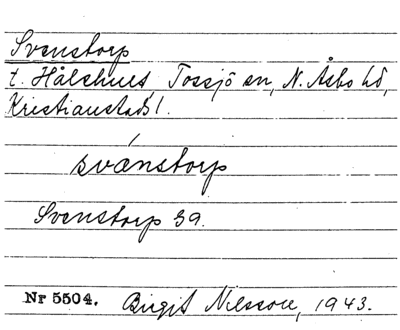 Svenstorp
t. Hålshult Tossjö sn, N. Åsbo hd,
Kristianstads l.
svánstorp
Svenstorp 39.
Nr 5504. Birgit Nilsson, 1943.